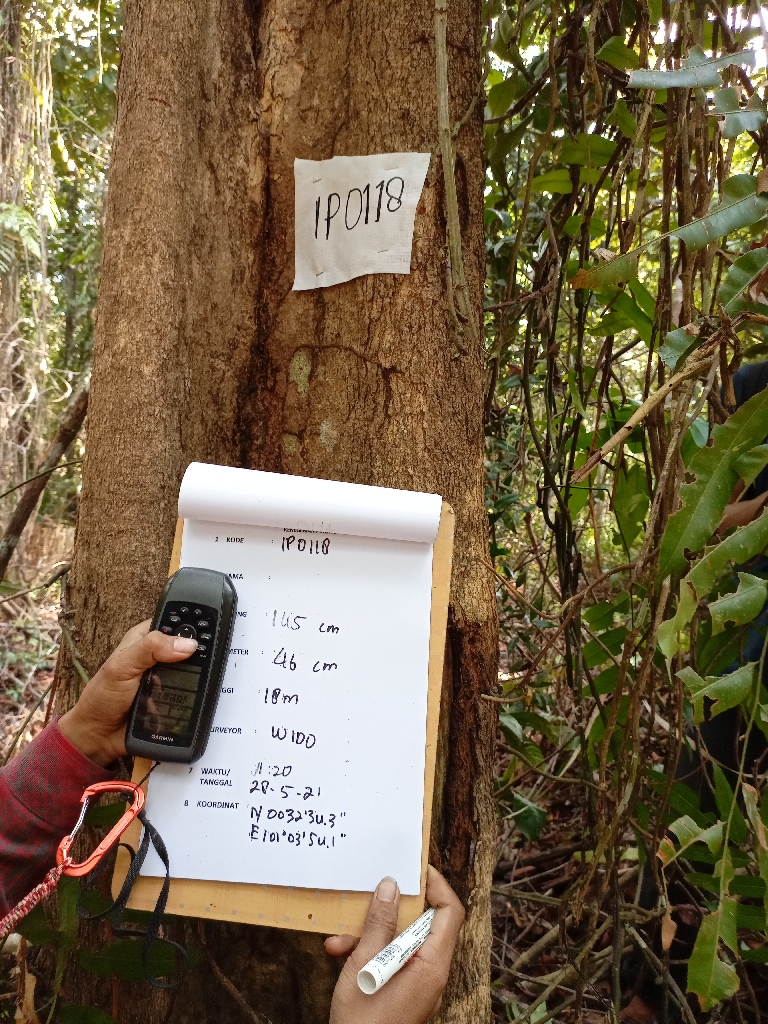 IP0118
2 KODE : IP0118
AMA :
NG : 145 cm
METER : 46 cm
GGI : 18m
URVEYOR : WIDO
7 WAKTU/ 11:20
TANGGAL 28-5-21
8 KOORDINAT N 0032'34.3"
E101°03'54.1"
GARMIN